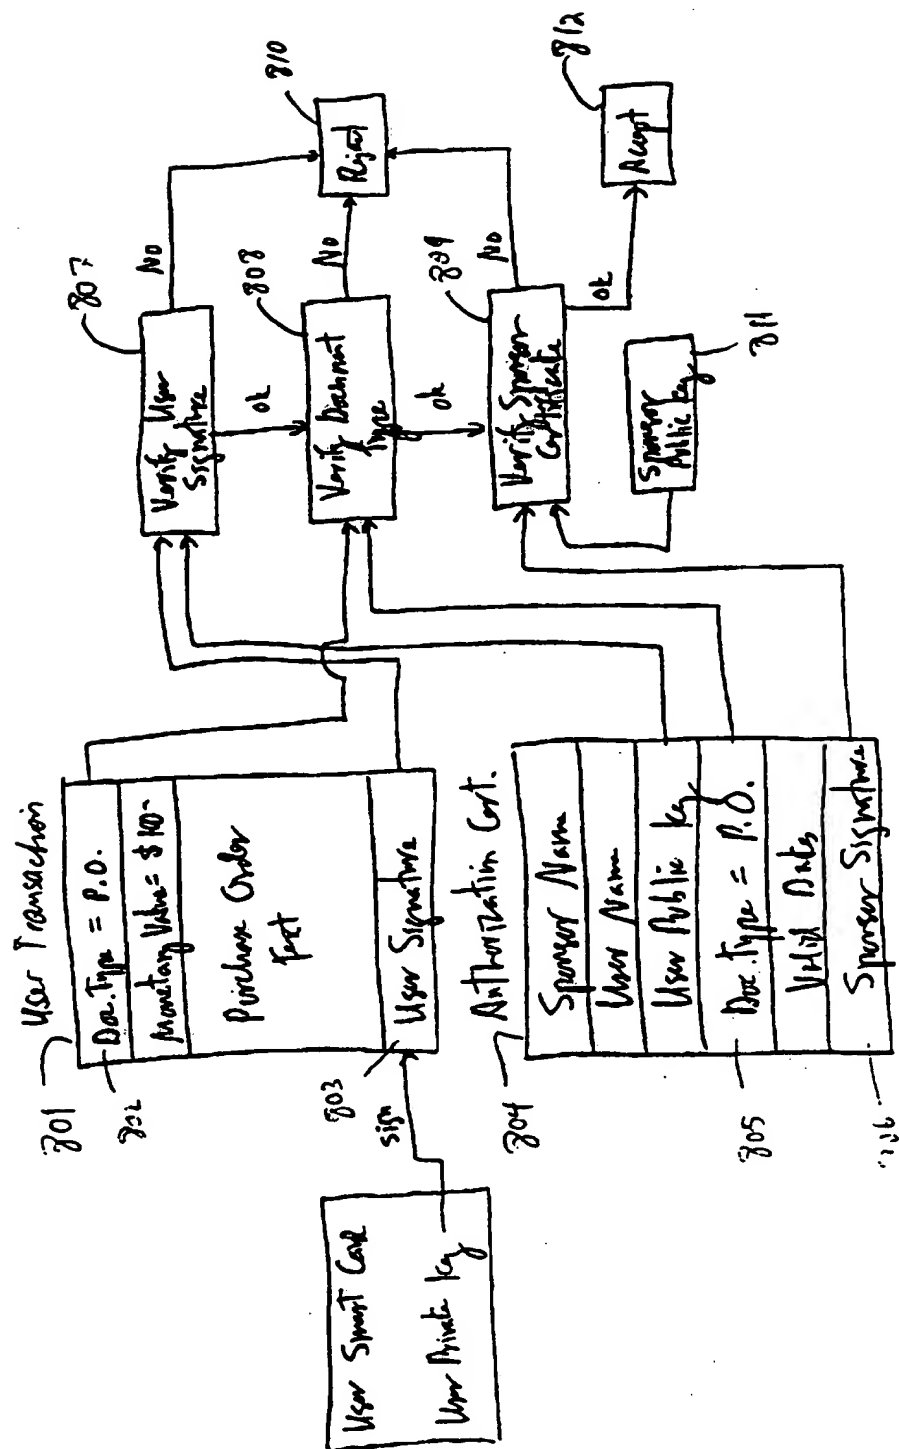 User Transaction
801
Doc. Type = P.O.
802
Monetary Value = $10-
Purchase Order
Text
User Signature
803
sign
User Smart Card
User Private Key
804
Authorization Cert.
Sponsor Name
User Name
User Public Key
Doc. Type = P.O.
805
Valid Dates
Sponsor Signature
807
Verify User
Signature
No
ok
808
Verify Document
Type
No
ok
809
Verify Sponsor
Certificate
No
ok
810
Reject
812
Accept
Sponsor
Public Key
811